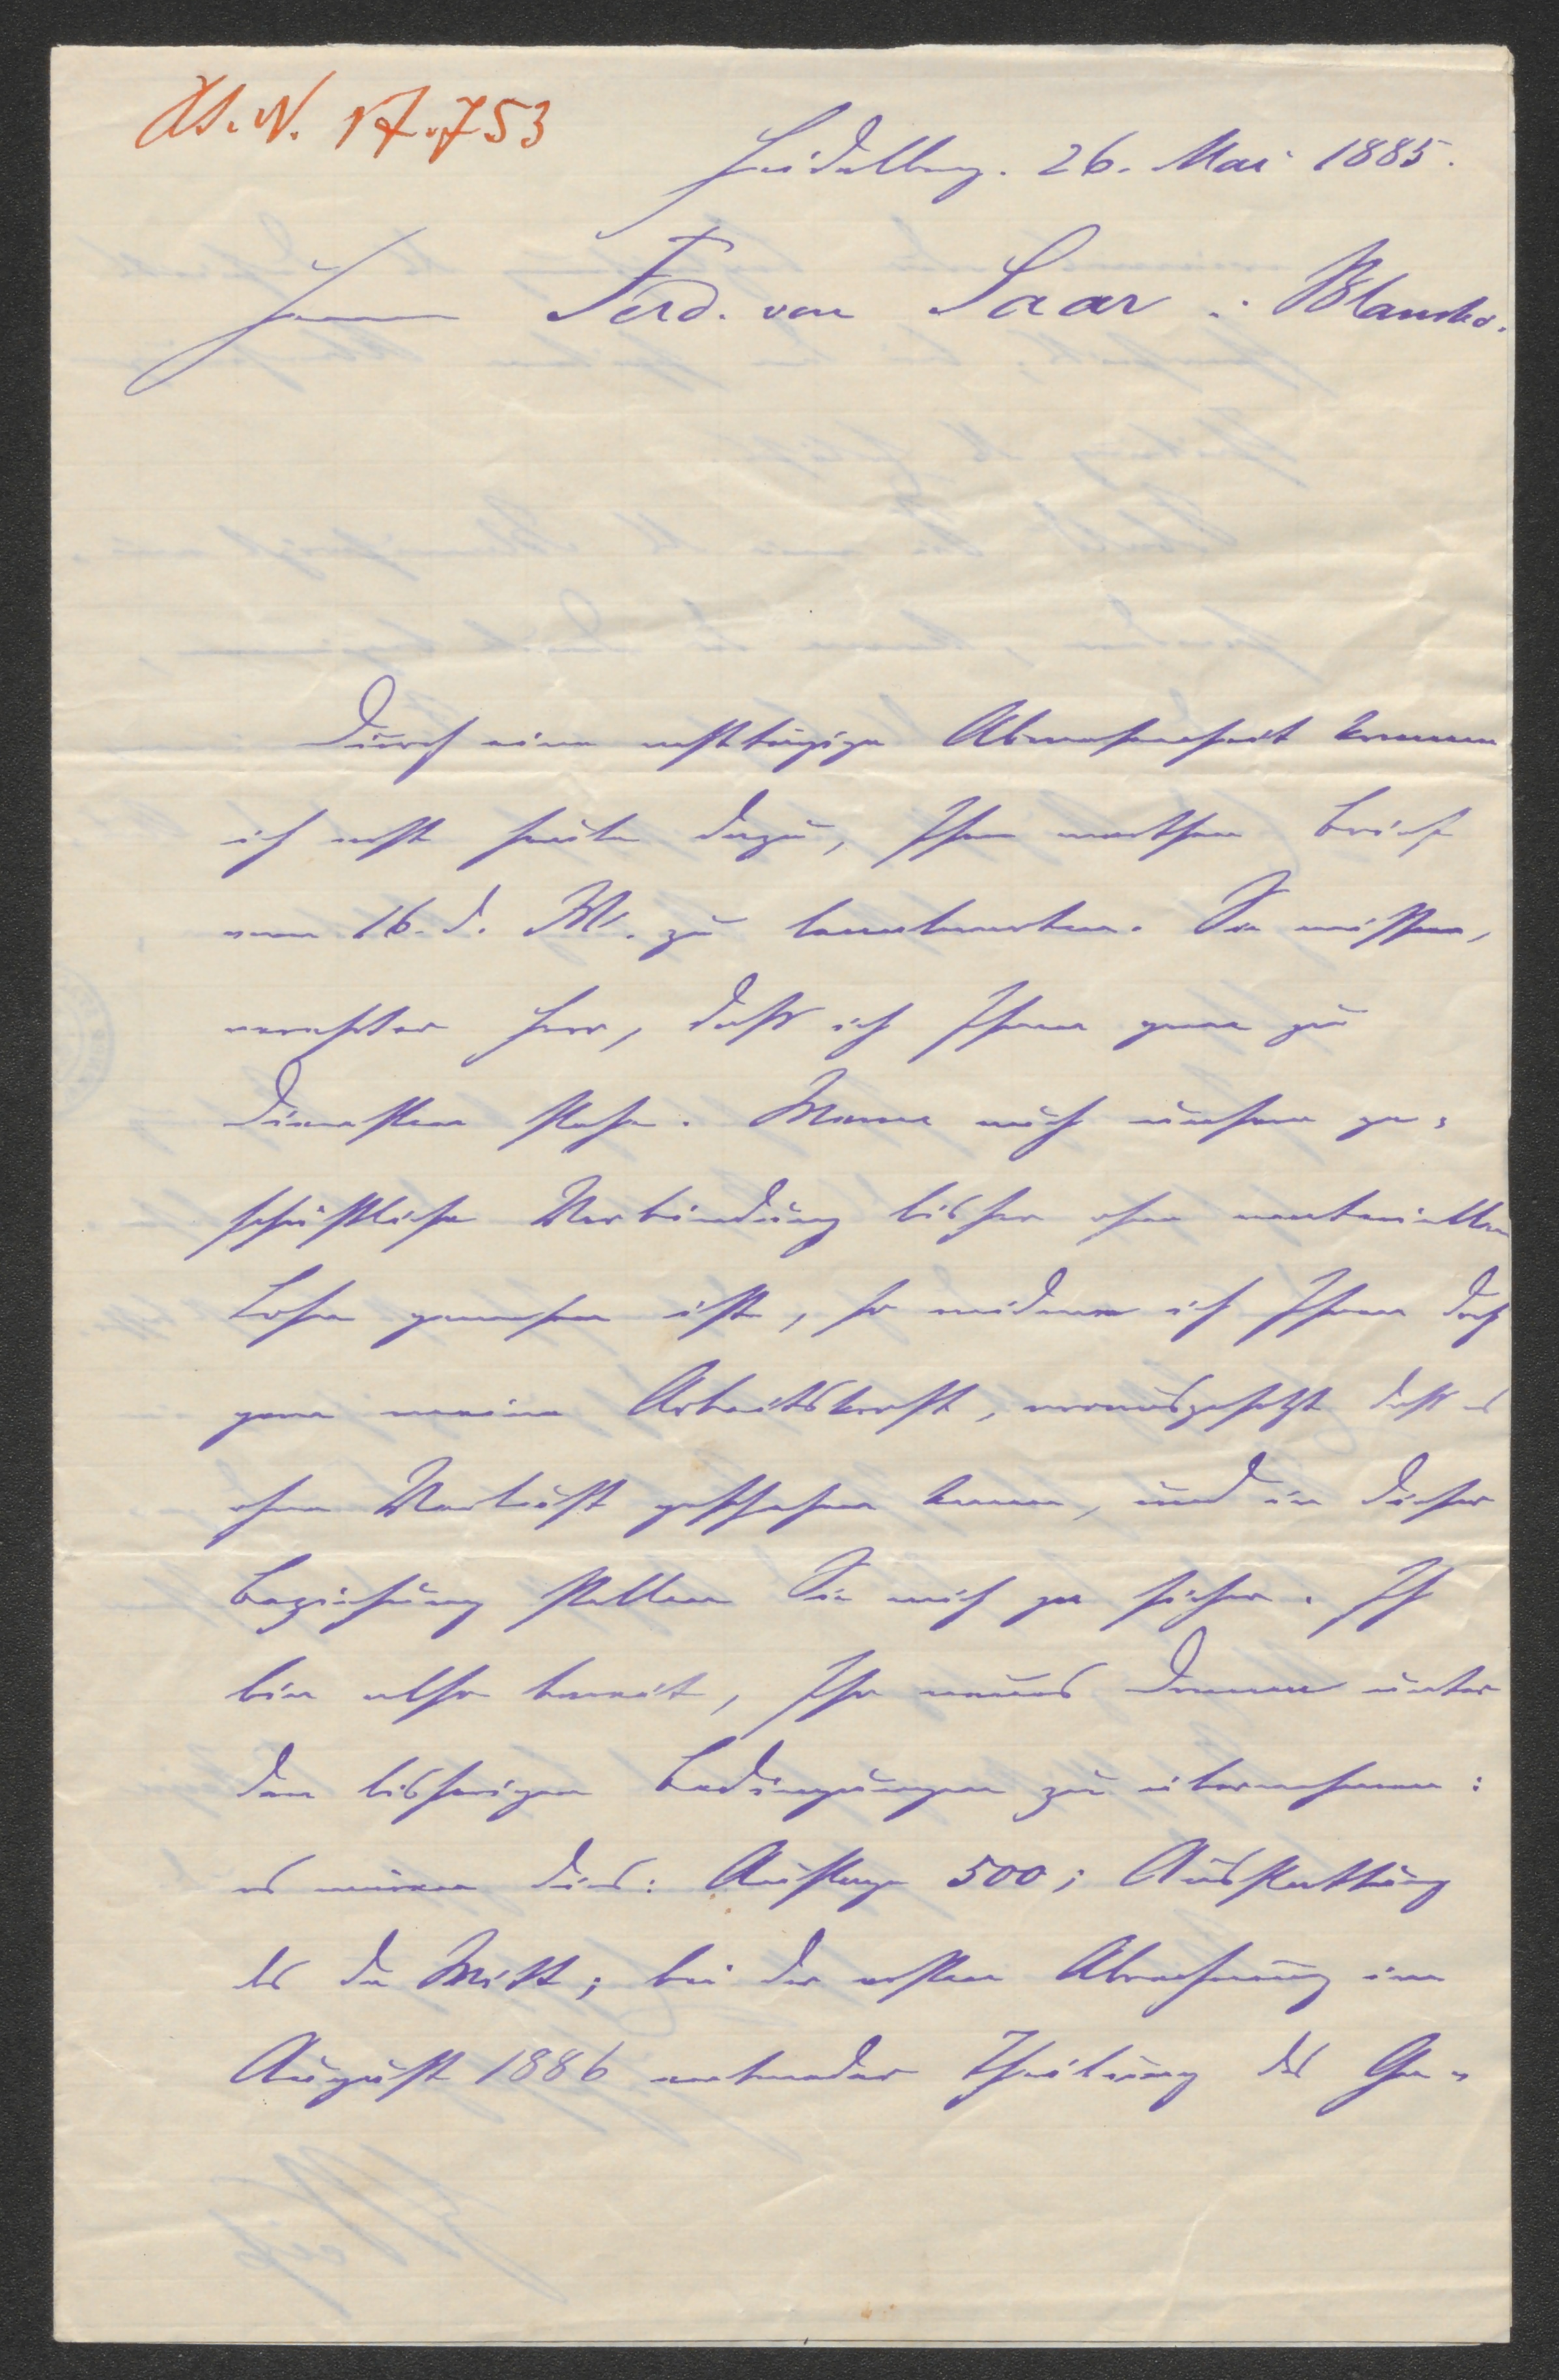 Hs. N. 17.753
Heidelberg. 26. Mai 1885.
Herrn Ferd. von Saar : Blansko.
Durch eine achttägige Abwesenheit komme
ich erst heute dazu, Ihren werthen Brief
vom 16. d. Mts. zu beantworten. Sie wissen,
verehrter Herr, daß ich Ihnen gern zu
Diensten stehe. Wenn auch unsere ge-
schäftliche Verbindung bisher ohne materiellen
Lohn gewesen ist, so widme ich Ihnen doch
gern meine Arbeitskraft, vorausgesetzt daß es
ohne Verlust geschehen kann, und in dieser
Beziehung stellen Sie mich ja sicher. Ich
bin also bereit, Ihr neues Drama unter
den bisherigen Bedingungen zu übernehmen:
es wären dies: Auflage 500; Ausstattung
der De Witt; bei der ersten Abrechnung im
August 1886 entweder Theilung des Ge-